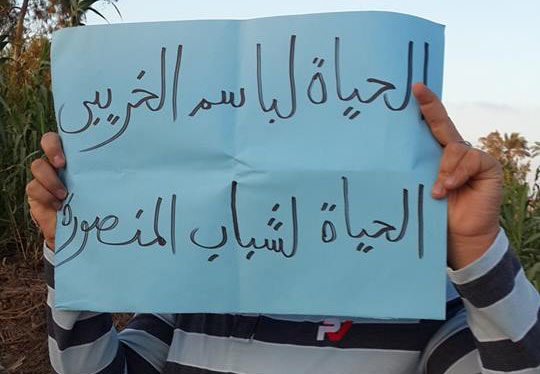 الحياة لباسم الخريبى
الحياة لشباب المنصورة